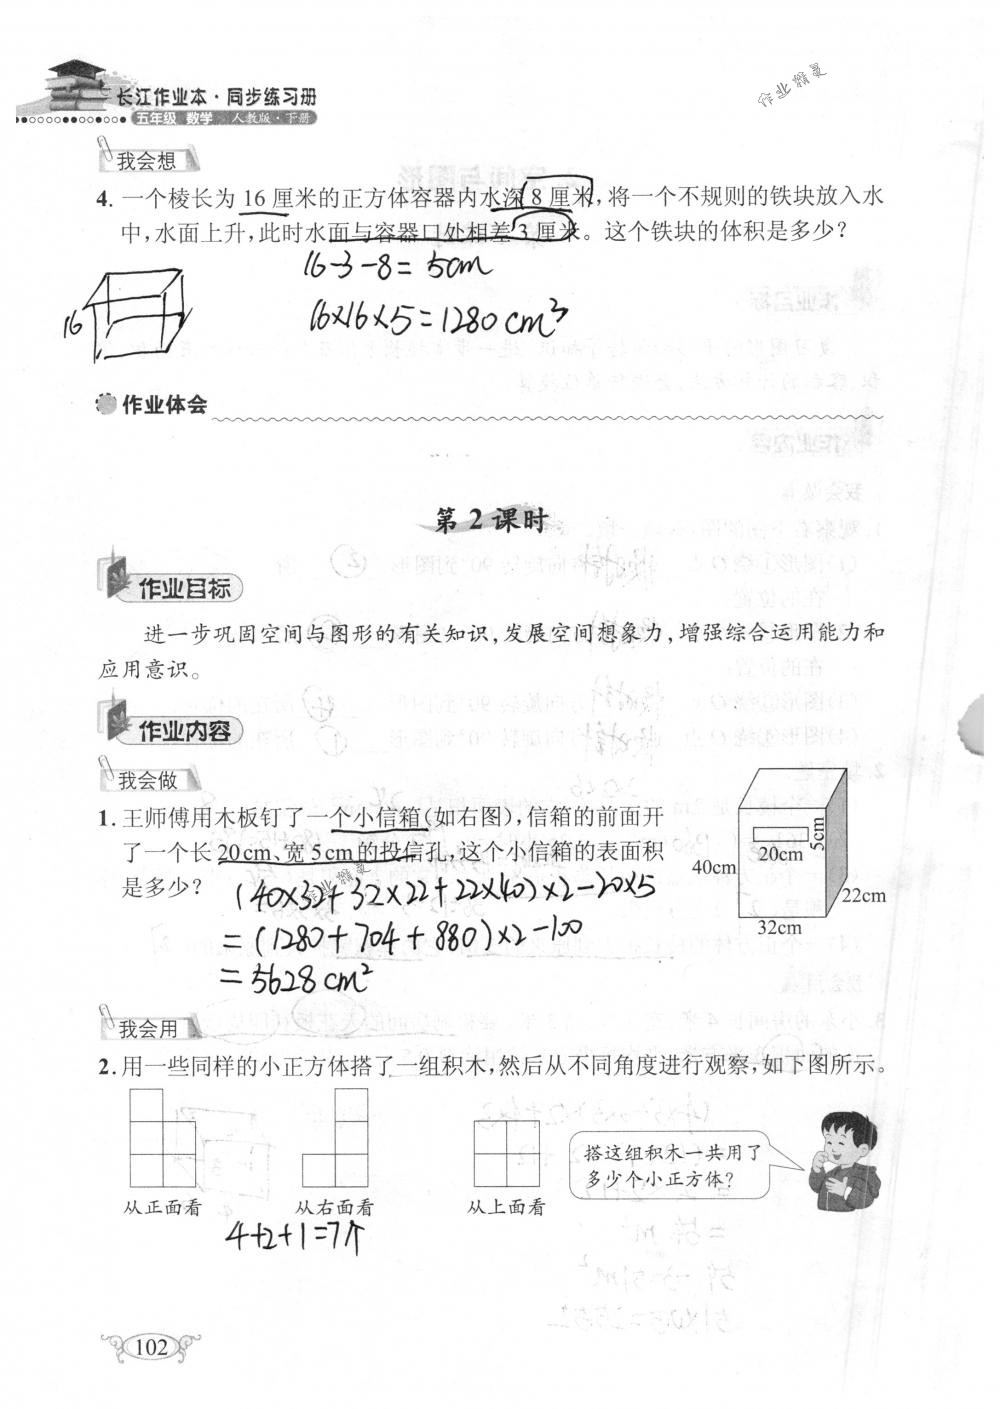 长江作业本·同步练习册
五年级 数学 人教版·下册
作业精灵
我会想
4. 一个棱长为 16 厘米的正方体容器内水深 8 厘米,将一个不规则的铁块放入水
中,水面上升,此时水面与容器口处相差 3 厘米。这个铁块的体积是多少?
16-3-8=5cm
16×16×5=1280cm³
16
作业体会
第 2 课时
作业目标
进一步巩固空间与图形的有关知识,发展空间想象力,增强综合运用能力和
应用意识。
作业内容
我会做
1. 王师傅用木板钉了一个小信箱(如右图),信箱的前面开
了一个长 20cm、宽 5cm的投信孔,这个小信箱的表面积
是多少?
(40×32+32×22+22×40)×2-20×5
=(1280+704+880)×2-100
=5628cm²
作业精灵
5cm
20cm
40cm
22cm
32cm
我会用
2. 用一些同样的小正方体搭了一组积木,然后从不同角度进行观察,如下图所示。
从正面看
从右面看
从上面看
搭这组积木一共用了
多少个小正方体?
4+2+1=7个
102